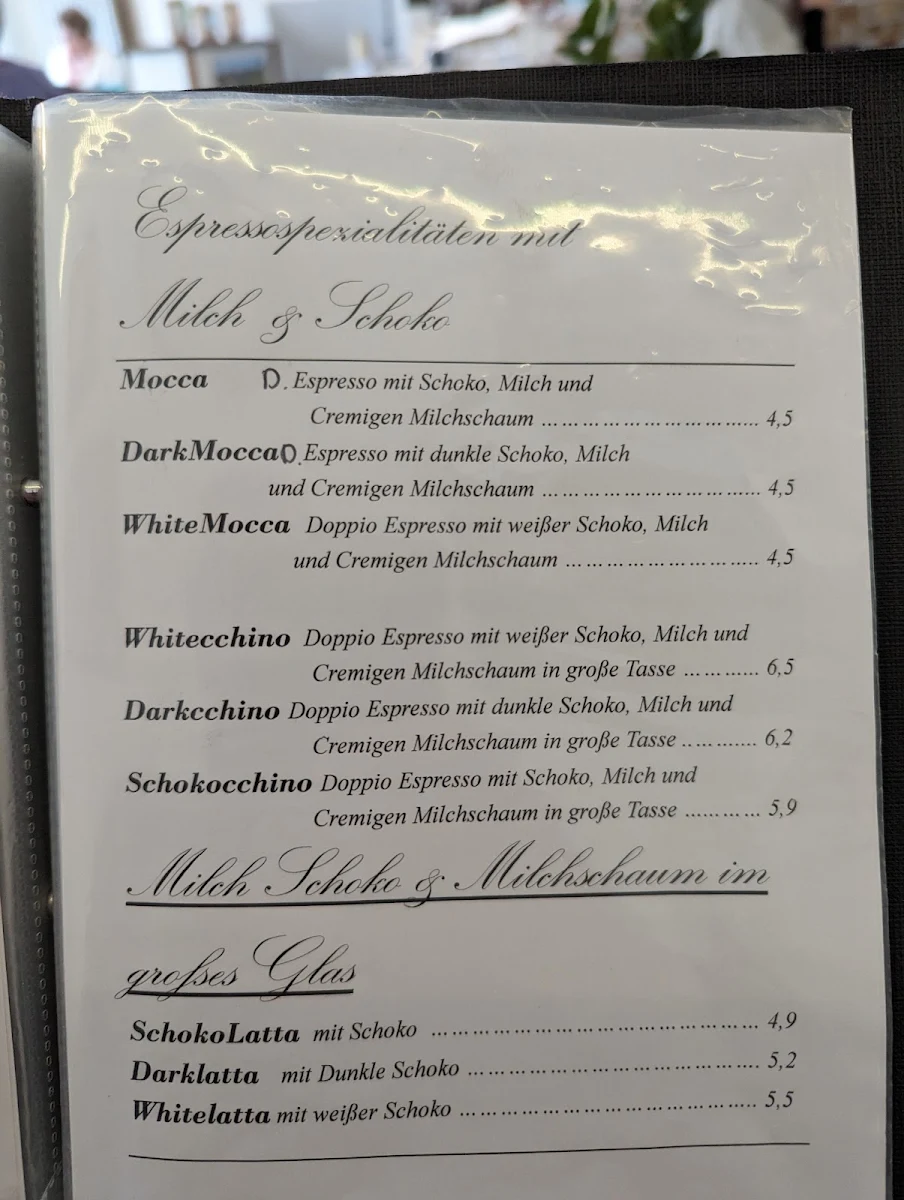 Espressospezialitäten mit
Milch & Schoko
Mocca D. Espresso mit Schoko, Milch und
Cremigen Milchschaum ................................. 4,5
DarkMocca D. Espresso mit dunkle Schoko, Milch
und Cremigen Milchschaum ................................. 4,5
WhiteMocca Doppio Espresso mit weißer Schoko, Milch
und Cremigen Milchschaum ............................. 4,5
Whitecchino Doppio Espresso mit weißer Schoko, Milch und
Cremigen Milchschaum in große Tasse ............ 6,5
Darkcchino Doppio Espresso mit dunkle Schoko, Milch und
Cremigen Milchschaum in große Tasse ............ 6,2
Schokocchino Doppio Espresso mit Schoko, Milch und
Cremigen Milchschaum in große Tasse ............ 5,9
Milch Schoko & Milchschaum im
großes Glas
SchokoLatta mit Schoko ................................................ 4,9
Darklatta mit Dunkle Schoko ........................................... 5,2
Whitelatta mit weißer Schoko ........................................... 5,5